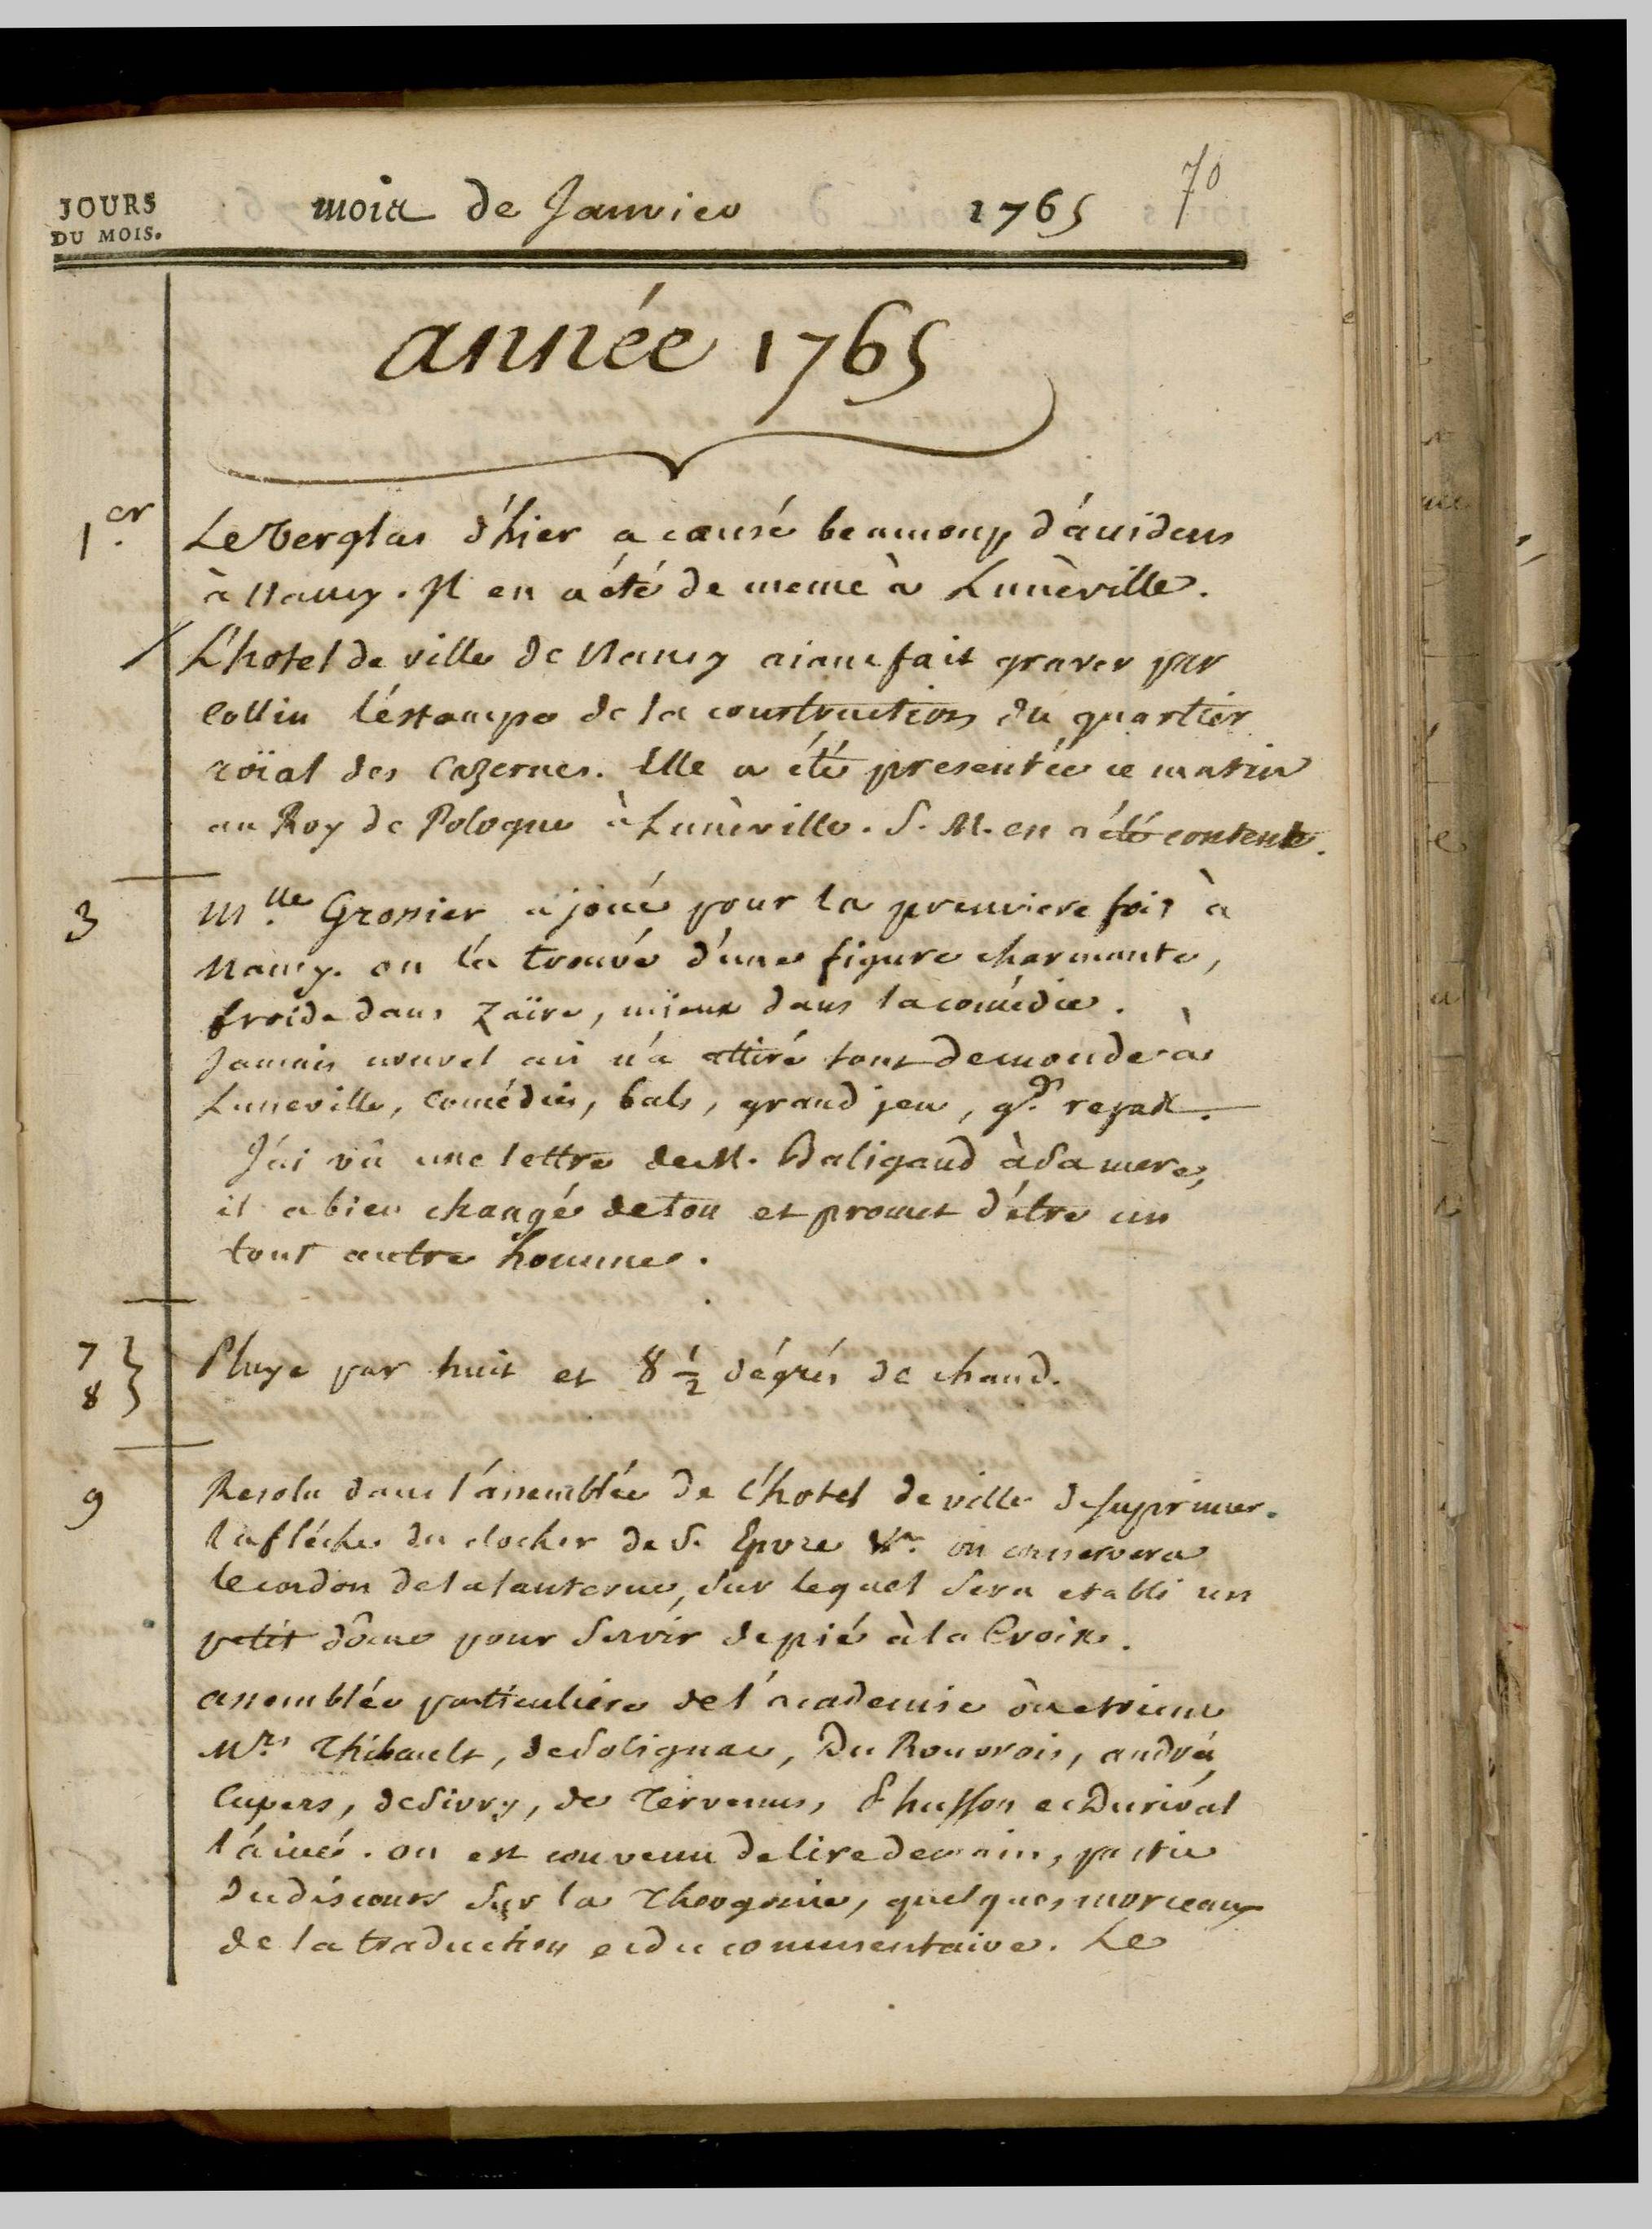 70
JOURS DU MOIS. mois de Janvier 1765
année 1765
1.er Le Verglas d'hier a causé beaucoup d'accidens
à Nancy. Il en a été de meme à Lunéville.
L'hotel de ville de Nancy aiant fait graver par
Collin l'éstampe de la construction du quartier
roïal des Cazernes. Elle a été presentée ce matin
au Roy de Pologne à Lunéville. S. M. en a été contente.
3 M.lle Grosier a joué pour la premiere fois à
Nancy. on l'a trouvé d'une figure charmante,
froide dans Zaïre, mieux dans la comédie.
Jamais nouvel an n'a attiré tant de monde à
Luneville, Comédies, bals, grand jeu, g.d repas.
J'ai vû une lettre de M. Baligand à Sa mere,
il a bien changé de ton et promet d'étre un
tout autre homme.
7
8 } Pluye par huit et 8 1/2 dégrés de chaud.
9 Resolu dans l'assemblée de l'hotel de ville de suprimer
la fléche du clocher de S. Epvre on conservera
le cordon de la lanterne, Sur lequel Sera etabli un
petit dôme pour Servir de pié à la Croix.
assemblée particuliere de l'academie où etoient
M.rs Thibault, de Solignac, Du Rouvrois, andré,
Cupers, de Sivry, de Tervenus, L'husson et Durival
l'ainé. on est convenu de lire demain, partie
du discours Sur la Theogonie, quelques morceaux
de la traduction et du commentaire. Le